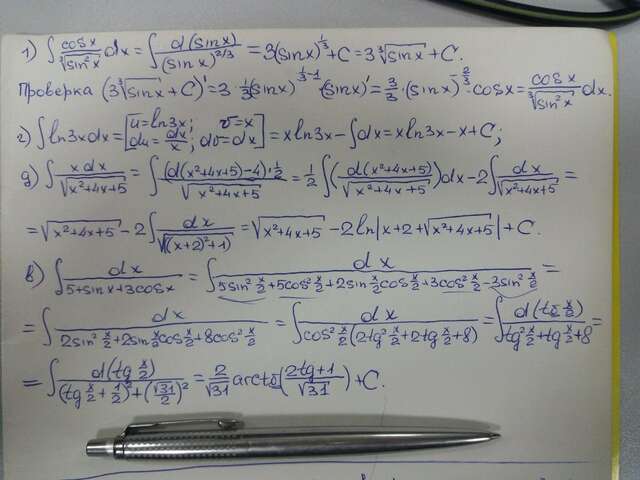 1) ∫ cosx/∛(sin²x) dx = ∫ d(sinx)/(sinx)^(2/3) = 3(sinx)^(1/3) + C = 3∛sinx + C.
Проверка (3∛sinx + C)' = 3·1/3(sinx)^(1/3-1)·(sinx)' = 3/3·(sinx)^(-2/3)·cosx = cosx/∛(sin²x) dx.
2) ∫ln3xdx = [u=ln3x; v=x; du=dx/x; dv=dx] = xln3x - ∫dx = xln3x - x + C;
д) ∫ xdx/√(x²+4x+5) = ∫ (d(x²+4x+5)-4)·1/2 / √(x²+4x+5) = 1/2 ∫(d(x²+4x+5)/√(x²+4x+5))dx - 2∫ dx/√(x²+4x+5) =
= √(x²+4x+5) - 2∫ dx/√((x+2)²+1) = √(x²+4x+5) - 2ln|x+2+√(x²+4x+5)| + C.
в) ∫ dx/(5+sinx+3cosx) = ∫ dx/(5sin² x/2 + 5cos² x/2 + 2sin x/2 cos x/2 + 3cos² x/2 - 3sin² x/2) =
= ∫ dx/(2sin² x/2 + 2sin x/2 cos x/2 + 8cos² x/2) = ∫ dx/(cos² x/2 (2tg² x/2 + 2tg x/2 + 8)) = ∫ d(tg x/2)/(tg² x/2 + tg x/2 + 8) =
= ∫ d(tg x/2)/((tg x/2 + 1/2)² + (√31/2)²) = 2/√31 arctg(2tg+1/√31) + C.